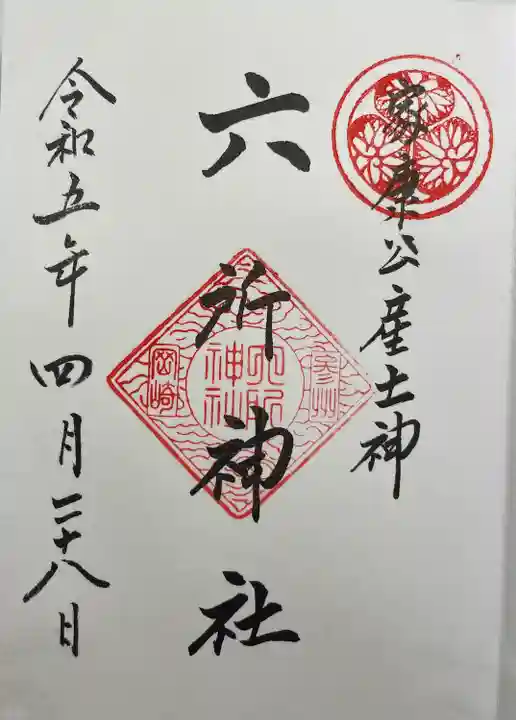 家康公産土神
六所神社
参州
六所神社
岡崎
令和五年四月二十八日